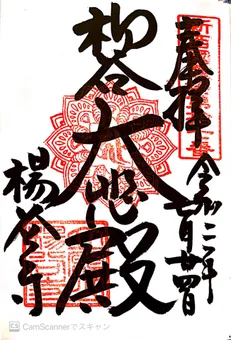 奉拝
令和二年七月廿四日
柳谷
大悲殿
楊谷寺
CS CamScannerでスキャン